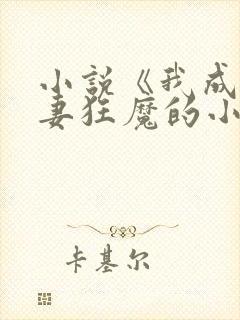 小说《我成
妻狂魔的小
卡基尔